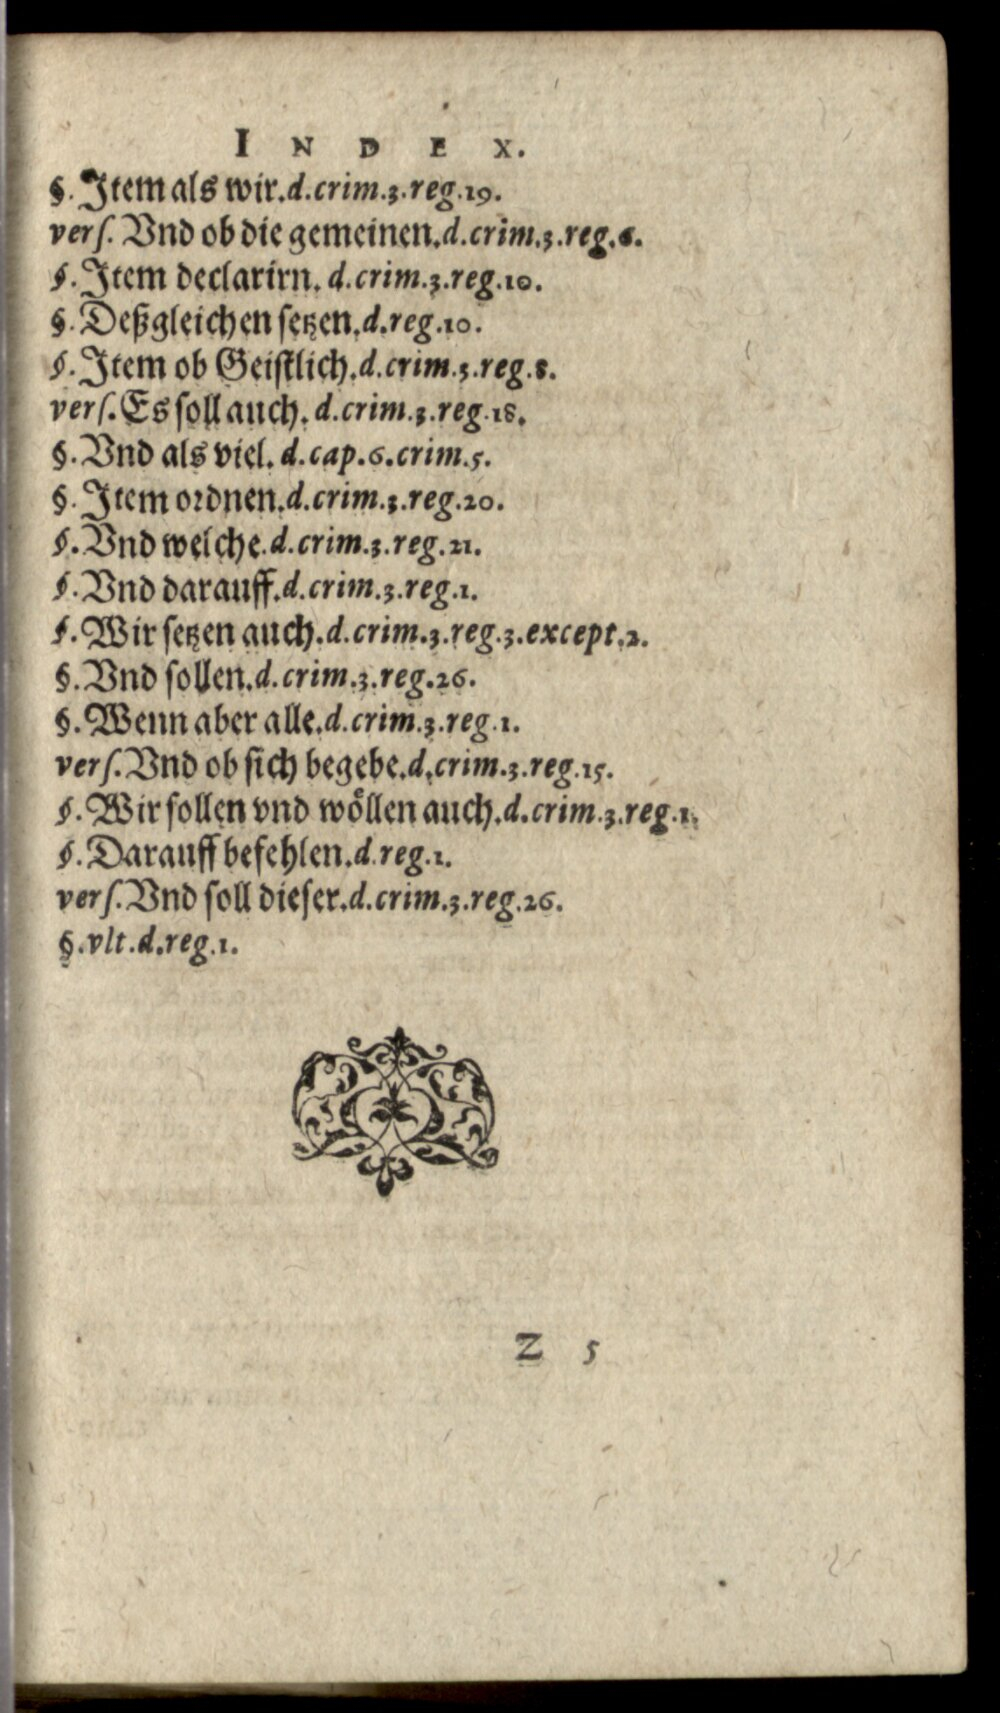 INDEX.
§. Item als wir. d. crim. 3. reg. 19.
vers. Vnd ob die gemeinen. d. crim. 3. reg. 6.
§. Item declarirn. d. crim. 3. reg. 10.
§. Deßgleichen setzen. d. reg. 10.
§. Item ob Geistlich. d. crim. 3. reg. 8.
vers. Es soll auch. d. crim. 3. reg. 18.
§. Vnd als viel. d. cap. 6. crim. 5.
§. Item ordnen. d. crim. 3. reg. 20.
§. Vnd welche. d. crim. 3. reg. 21.
§. Vnd darauff. d. crim. 3. reg. 1.
§. Wir setzen auch. d. crim. 3. reg. 3. except. 2.
§. Vnd sollen. d. crim. 3. reg. 26.
§. Wenn aber alle. d. crim. 3. reg. 1.
vers. Vnd ob sich begebe. d. crim. 3. reg. 15.
§. Wir sollen vnd wöllen auch. d. crim. 3. reg. 1.
§. Darauff befehlen. d. reg. 1.
vers. Vnd soll dieser. d. crim. 3. reg. 26.
§. vlt. d. reg. 1.
Z 5